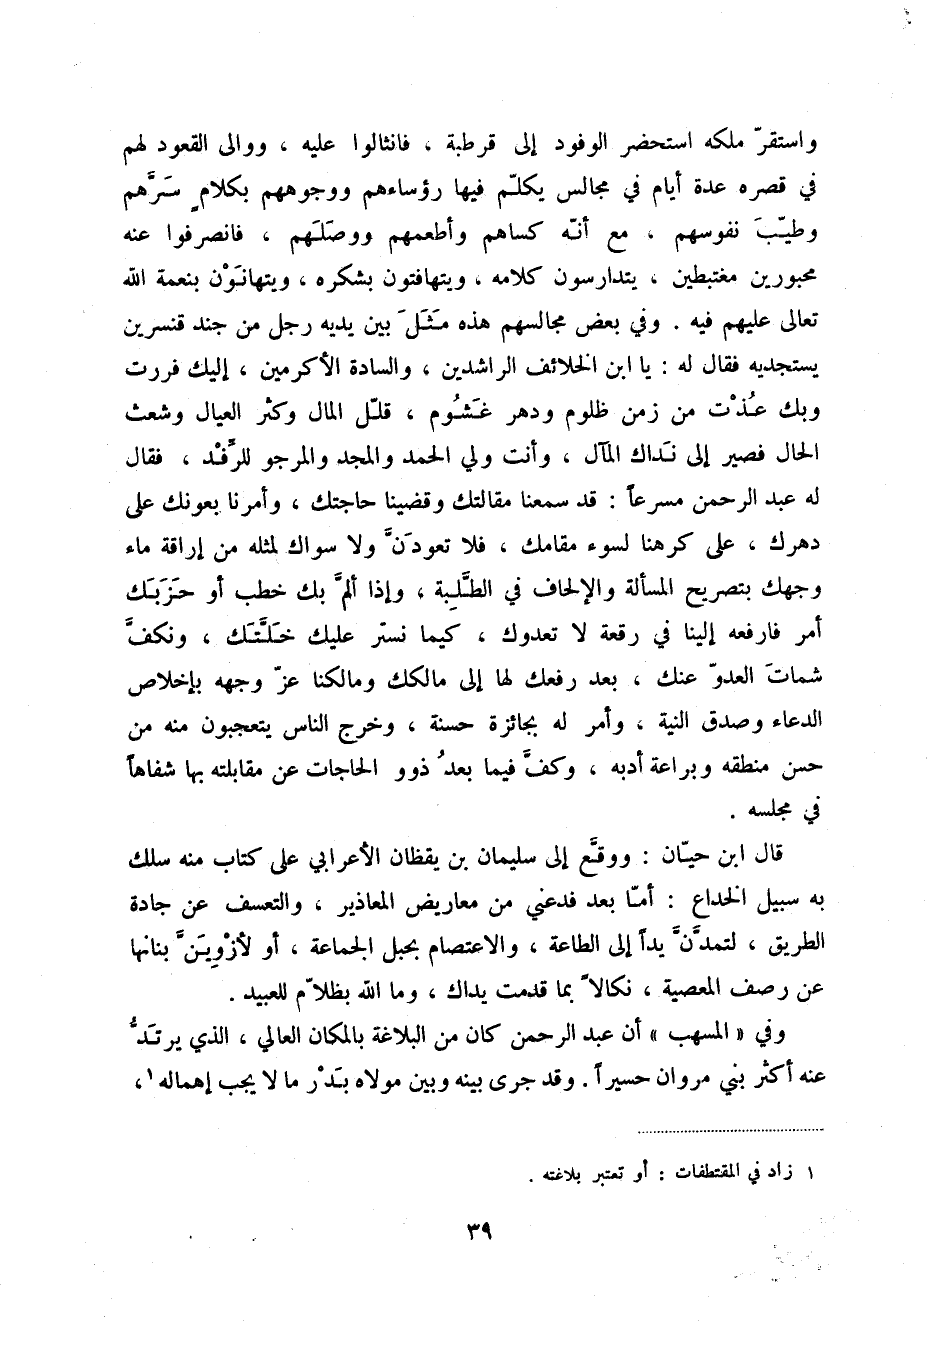 واستقرّ ملكه استحضر الوفود إلى قرطبة ، فانثالوا عليه ، ووالى القعود لهم
في قصره عدة أيام في مجالس يكلّم فيها رؤساءهم ووجوههم بكلامٍ سَرَّهم
وطيّبَ نفوسهم ، مع أنّه كساهم وأطعمهم ووصَلَهم ، فانصرفوا عنه
محبورين مغتبطين ، يتدارسون كلامه ، ويتهافتون بشكره ، ويتهانَوْن بنعمة الله
تعالى عليهم فيه . وفي بعض مجالسهم هذه مَثَلَ بين يديه رجل من جند قنسرين
يستجديه فقال له : يا ابن الخلائف الراشدين ، والسادة الأكرمين ، إليك فررت
وبك عُذْت من زمن ظلوم ودهر غَشُوم ، قلّل المال وكثر العيال وشعث
الحال فصير إلى نَداك المآل ، وأنت ولي الحمد والمجد والمرجو للرِّفْد ، فقال
له عبد الرحمن مسرعاً : قد سمعنا مقالتك وقضينا حاجتك ، وأمرنا بعونك على
دهرك ، على كرهنا لسوء مقامك ، فلا تعودَنَّ ولا سواك لمثله من إراقة ماء
وجهك بتصريح المسألة والإلحاف في الطَّلِبة ، وإذا ألمَّ بك خطب أو حَزَبَك
أمر فارفعه إلينا في رقعة لا تعدوك ، كيما نستر عليك خَلَّتَك ، ونكفَّ
شماتَ العدوّ عنك ، بعد رفعك لها إلى مالكك ومالكنا عزّ وجهه بإخلاص
الدعاء وصدق النية ، وأمر له بجائزة حسنة ، وخرج الناس يتعجبون منه من
حسن منطقه وبراعة أدبه ، وكفَّ فيما بعدُ ذوو الحاجات عن مقابلته بها شفاهاً
في مجلسه .
قال ابن حيّان : ووقَّع إلى سليمان بن يقظان الأعرابي على كتاب منه سلك
به سبيل الخداع : أمّا بعد فدعني من معاريض المعاذير ، والتعسف عن جادة
الطريق ، لتمدَّنَّ يداً إلى الطاعة ، والاعتصام بحبل الجماعة ، أو لأزْوِيَنَّ بنانها
عن رصف المعصية ، نكالاً بما قدمت يداك ، وما الله بظلاّم للعبيد .
وفي « المسهب » أن عبد الرحمن كان من البلاغة بالمكان العالي ، الذي يرتَدُّ
عنه أكثر بني مروان حسيراً . وقد جرى بينه وبين مولاه بَدْر ما لا يجب إهماله ١ ،
١ زاد في المقتطفات : أو تعتبر بلاغته .
٣٩